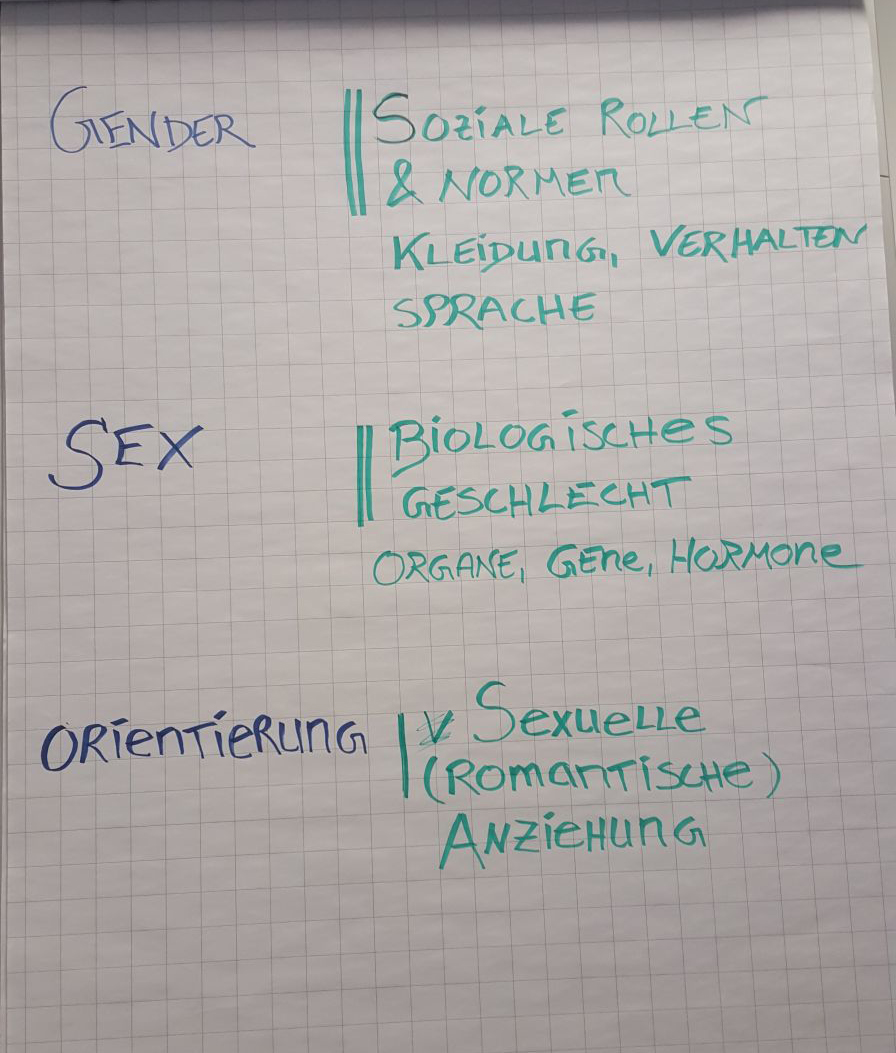 GENDER
SOZiALE ROLLEN
& NORMEN
KLEiDUNG, VERHALTEN
SPRACHE
SEX
BiOLOGiSCHES
GESCHLECHT
ORGANE, GENe, HORMONe
ORiENTiERUNG
SEXUELLE
(ROMANTiSCHE)
ANZiEHUNG